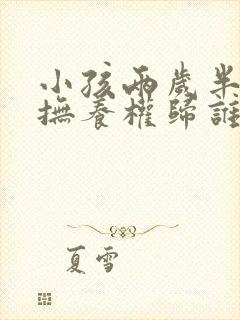 小孩兩歲半
撫養權歸誰
夏雪